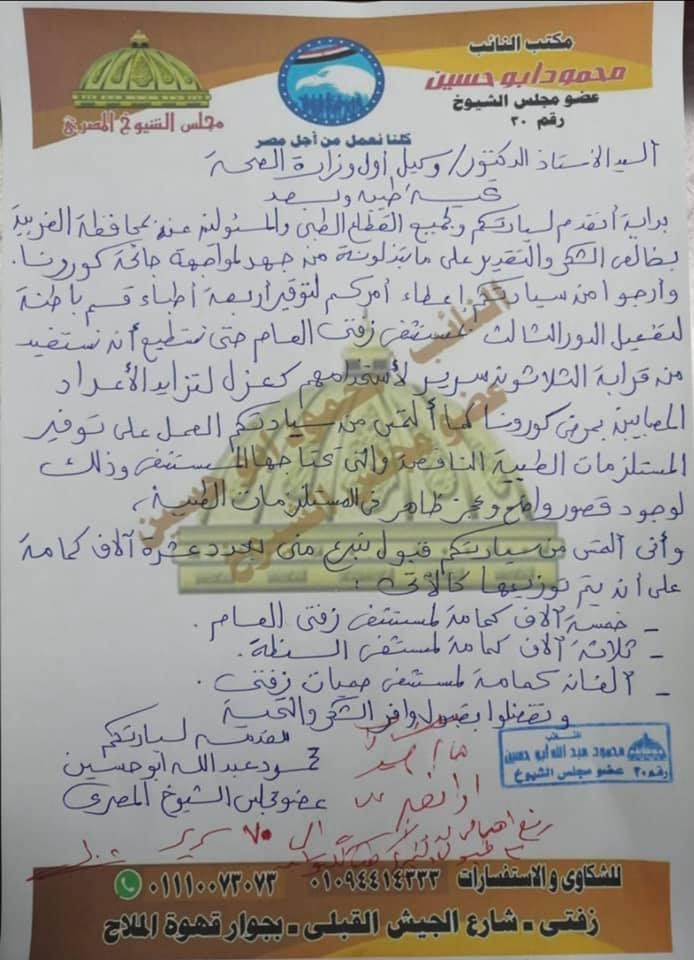 مكتب النائب
محمود أبو حسين
عضو مجلس الشيوخ
رقم ٣٠
مجلس الشيوخ المصرى
كلنا نعمل من أجل مصر
السيد الأستاذ الدكتور/ وكيل أول وزارة الصحة
تحية طيبة وبعد
بداية أتقدم لسيادتكم ولجميع القطاع الطبى والمسئولين عنه بمحافظة الغربية
بخالص الشكر والتقدير على ما تبذلونه من جهد لمواجهة جائحة كورونا.
وأرجوا من سيادتكم إعطاء أمركم لتوفير أربعة أطباء قسم باطنة
لتفعيل الدور الثالث لمستشفى زفتى العام حتى نستطيع أن نستفيد
من قرابة الثلاثون سرير لأستخدامهم كعزل لتزايد الأعداد
المصابين بمرض كورونا كما ألتمس من سيادتكم العمل على توفير
المستلزمات الطبية الناقصة والتى تحتاجها المستشفى وذلك
لوجود قصور واضح وعجز ظاهر فى المستلزمات الطبية،
وأنى ألتمس من سيادتكم قبول تبرع منى بعدد عشرة آلاف كمامة
على أن يتم توزيعها كالأتى :
- خمسة آلاف كمامة لمستشفى زفتى العام .
- ثلاثة آلاف كمامة لمستشفى السنطة.
- ألفان كمامة لمستشفى حميات زفتى .
وتفضلوا بقبول وافر الشكر والتحية
مقدمه لسيادتكم
محمود عبد الله أبو حسين
عضو مجلس الشيوخ المصرى
النائب
محمود عبد الله أبو حسين
رقم ٣٠ عضو مجلس الشيوخ
ال ٧٠ سرير
للشكاوى والاستفسارات ٠١٠٩٤٤١٤٣٣٣ ٠١١١٠٠٧٣٠٧٣
زفتى - شارع الجيش القبلى - بجوار قهوة الملاح